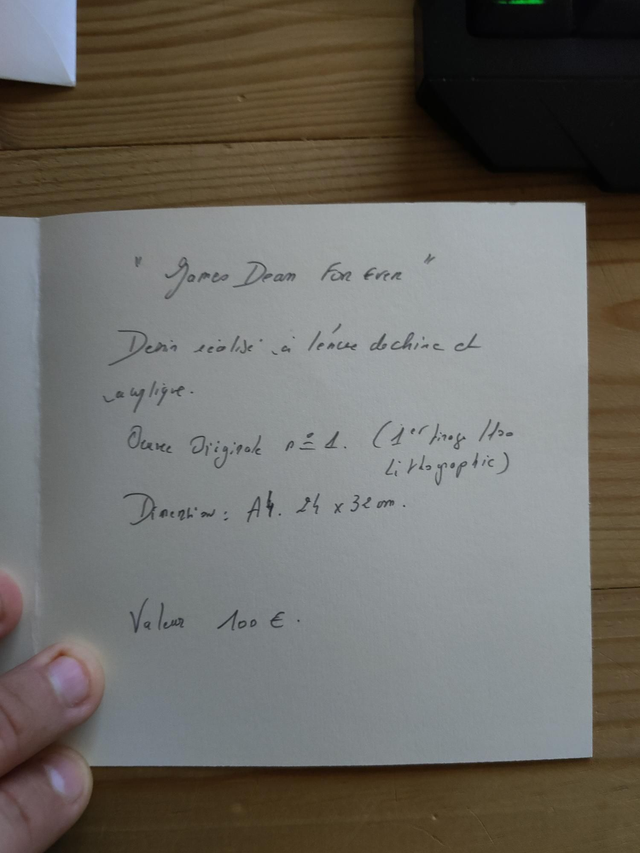 " James Dean For Ever "
Dessin réalisé à l'encre de chine et
acrylique.
Oeuvre Originale n° 1. (1er tirage
Lithographie)
Dimension : A4. 24 x 32 cm.
Valeur 100 €.